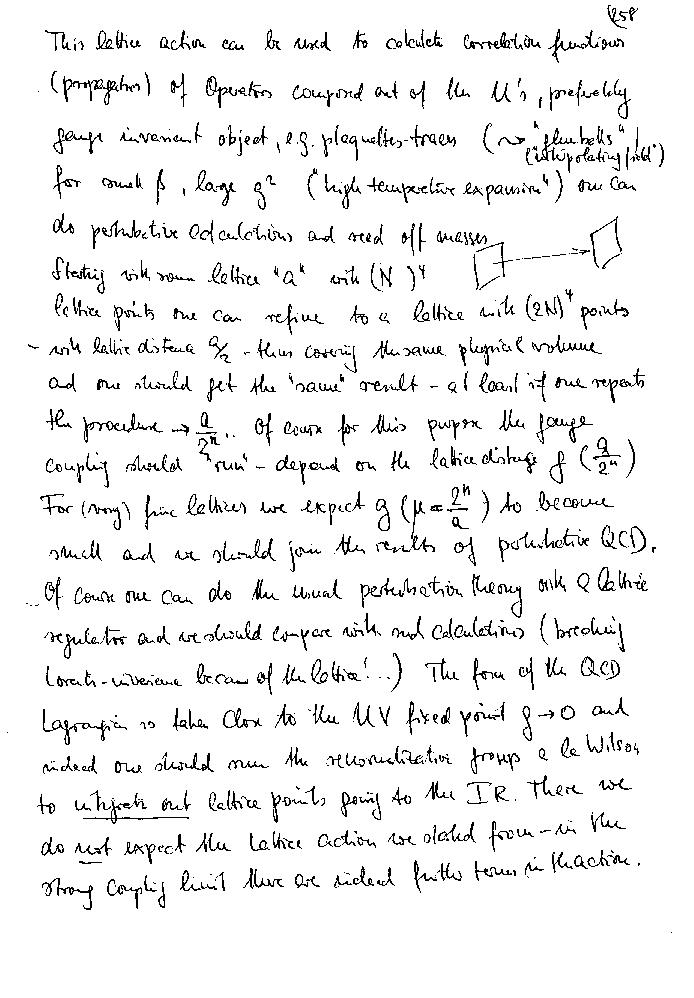 258
This lattice action can be used to calculate correlation functions
(propagators) of Operators composed out of the U's, preferably
gauge invariant object, e.g. plaquettes-traces (⤳ "glueballs" !
("interpolating field")
for small β, large g² ("high temperature expansion") one can
do perturbative calculations and read off masses.
Starting with some lattice "a" with (N )⁴
lattice points one can refine to a lattice with (2N)⁴ points
- with lattice distance a/2 - thus covering the same physical volume
and one should get the "same" result - at least if one repeats
the procedure → a/2ⁿ .. Of course for this purpose the gauge
coupling should "run" - depend on the lattice distance g (a/2ⁿ)
For (very) fine lattices we expect g (μ = 2ⁿ/a) to become
small and we should join the results of perturbative QCD.
Of course one can do the usual perturbation theory with a lattice
regulator and we should compare with such calculations (breaking
Lorentz-invariance because of the lattice! ...) The form of the QCD
Lagrangian is taken close to the UV fixed point g → 0 and
indeed one should run the renormalization groups a la Wilson
to integrate out lattice points going to the IR. There we
do not expect the lattice action we started from - in the
strong coupling limit there are indeed further terms in the action.